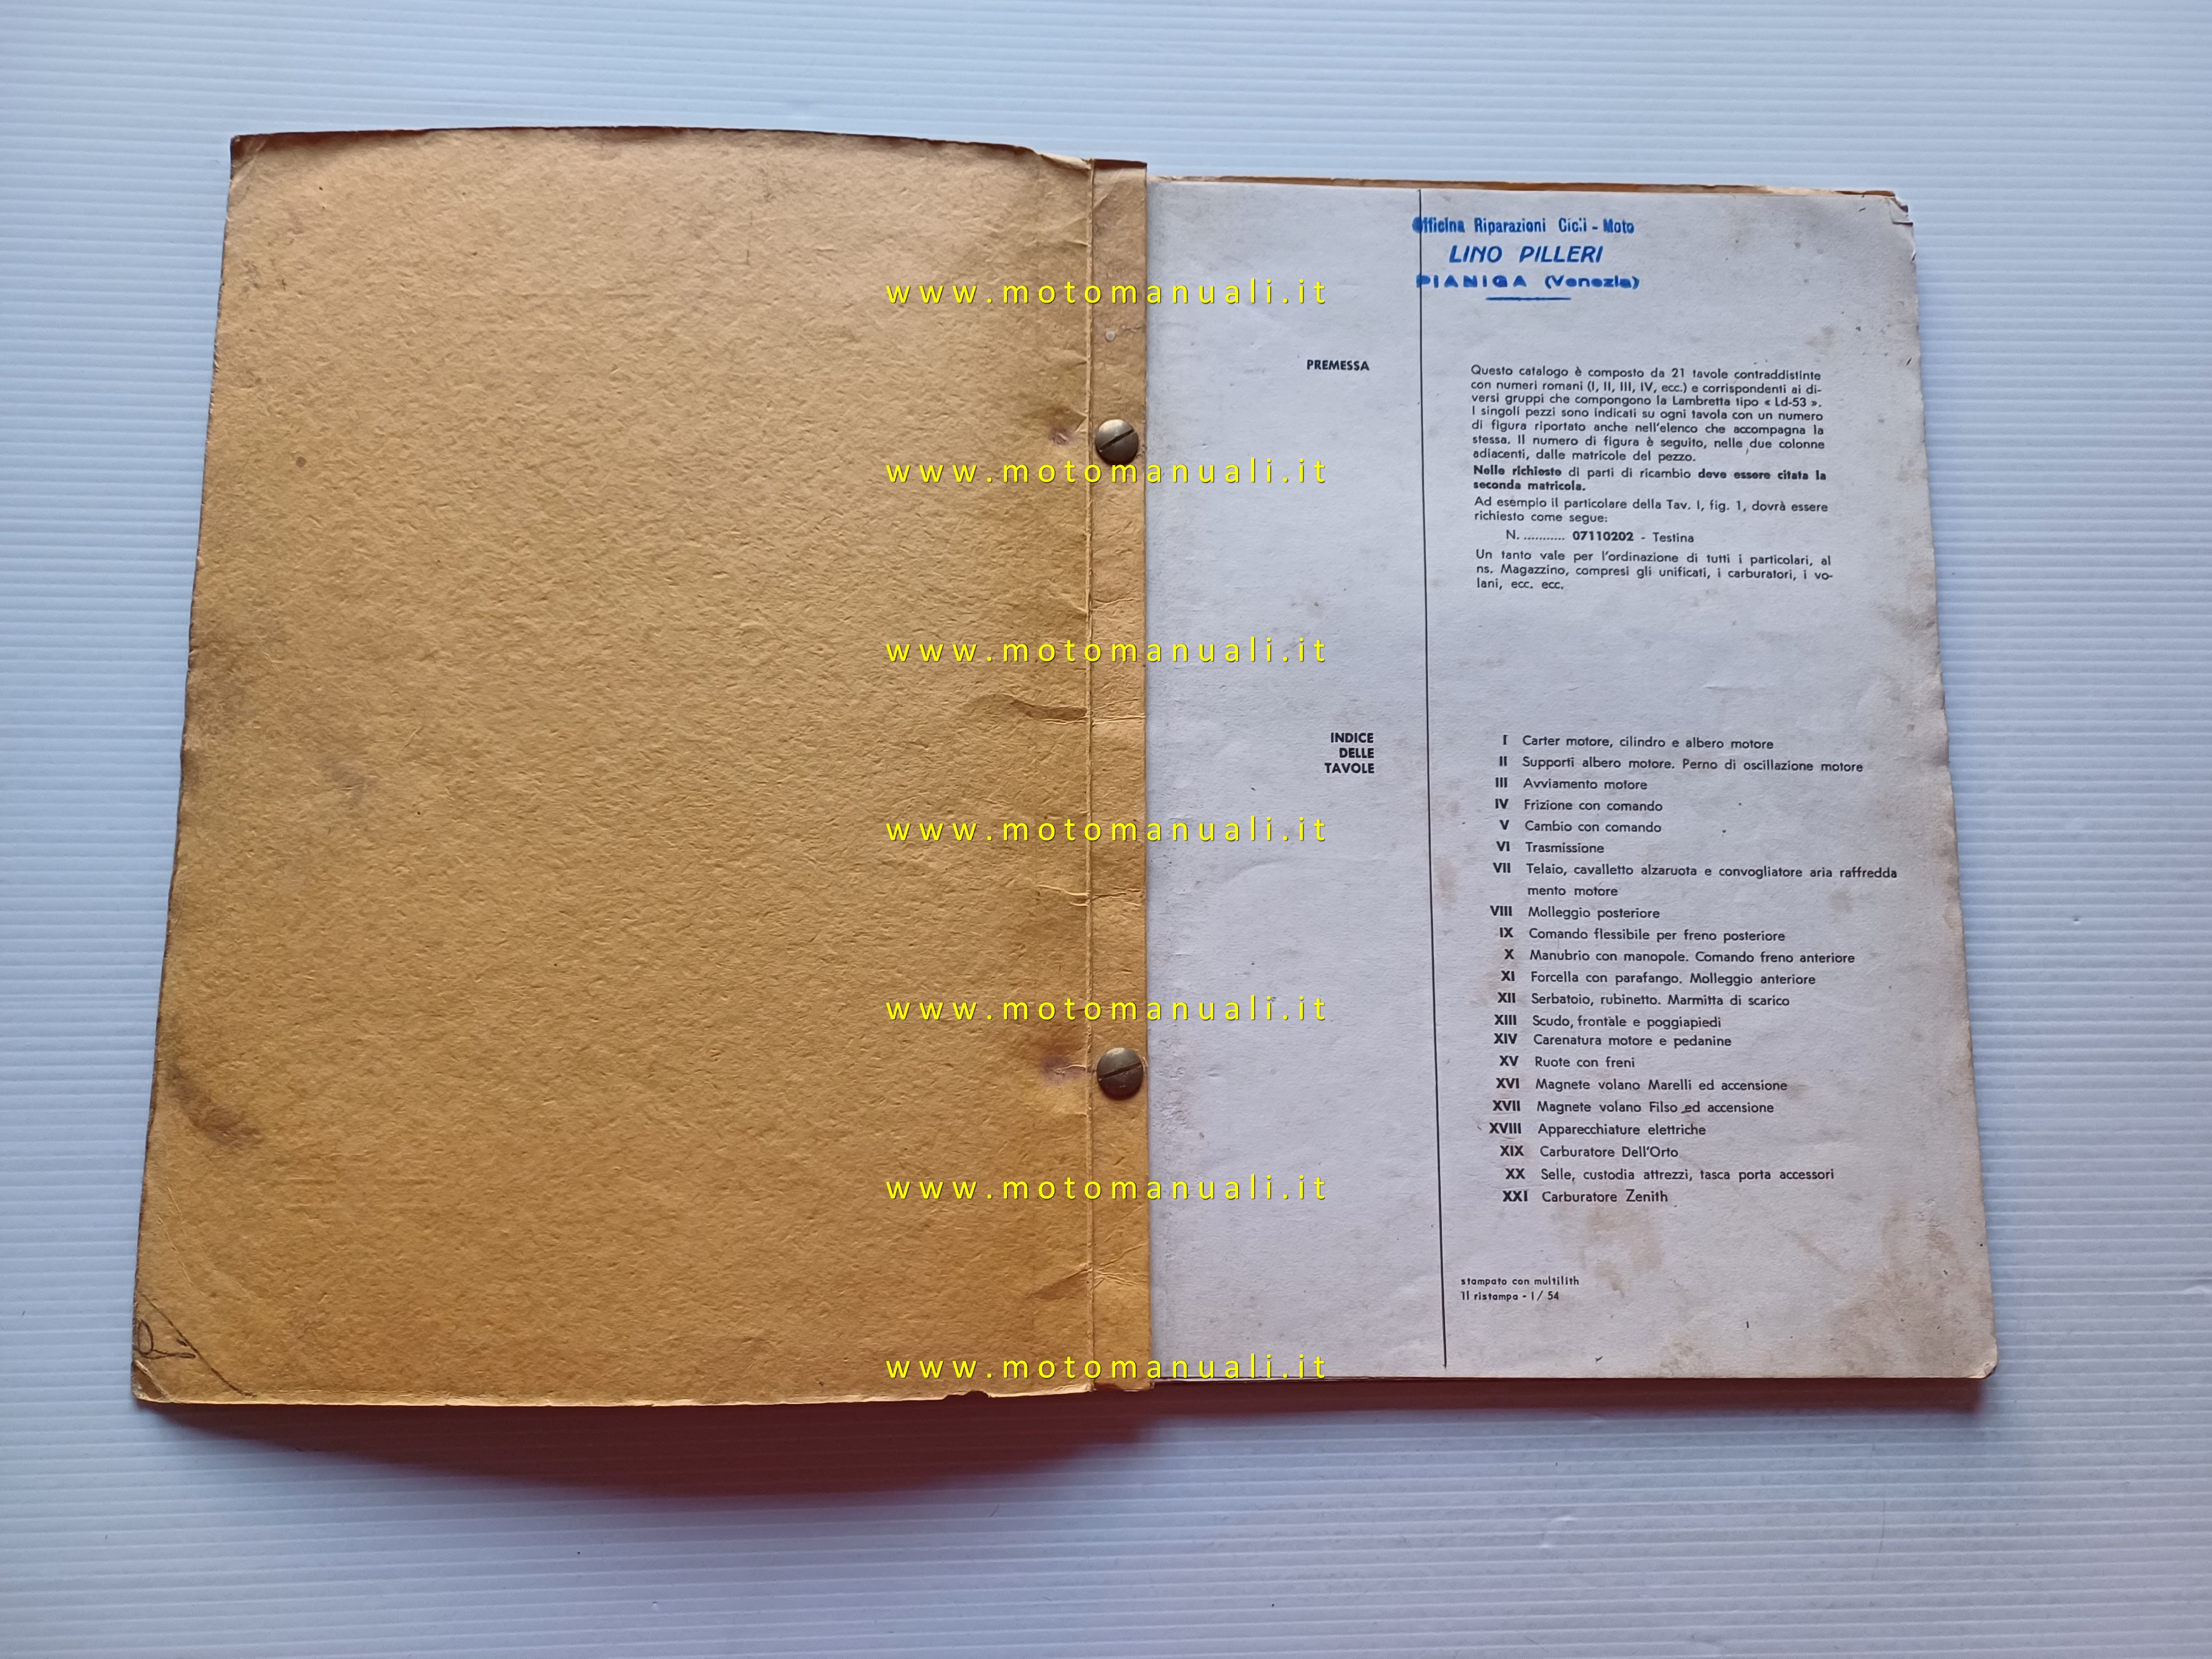 Officina Riparazioni Cicli - Moto
LINO PILLERI
PIANIGA (Venezia)
PREMESSA
Questo catalogo è composto da 21 tavole contraddistinte
con numeri romani (I, II, III, IV, ecc.) e corrispondenti ai di-
versi gruppi che compongono la Lambretta tipo « Ld-53 ».
I singoli pezzi sono indicati su ogni tavola con un numero
di figura riportato anche nell'elenco che accompagna la
stessa. Il numero di figura è seguito, nelle due colonne
adiacenti, dalle matricole del pezzo.
Nelle richieste di parti di ricambio deve essere citata la
seconda matricola.
Ad esempio il particolare della Tav. I, fig. 1, dovrà essere
richiesto come segue:
N. ........... 07110202 - Testina
Un tanto vale per l'ordinazione di tutti i particolari, al
ns. Magazzino, compresi gli unificati, i carburatori, i vo-
lani, ecc. ecc.
INDICE
DELLE
TAVOLE
I Carter motore, cilindro e albero motore
II Supporti albero motore. Perno di oscillazione motore
III Avviamento motore
IV Frizione con comando
V Cambio con comando
VI Trasmissione
VII Telaio, cavalletto alzaruota e convogliatore aria raffredda
mento motore
VIII Molleggio posteriore
IX Comando flessibile per freno posteriore
X Manubrio con manopole. Comando freno anteriore
XI Forcella con parafango. Molleggio anteriore
XII Serbatoio, rubinetto. Marmitta di scarico
XIII Scudo, frontale e poggiapiedi
XIV Carenatura motore e pedanine
XV Ruote con freni
XVI Magnete volano Marelli ed accensione
XVII Magnete volano Filso ed accensione
XVIII Apparecchiature elettriche
XIX Carburatore Dell'Orto
XX Selle, custodia attrezzi, tasca porta accessori
XXI Carburatore Zenith
stampato con multilith
II ristampa - I / 54
www.motomanuali.it
www.motomanuali.it
www.motomanuali.it
www.motomanuali.it
www.motomanuali.it
www.motomanuali.it
www.motomanuali.it